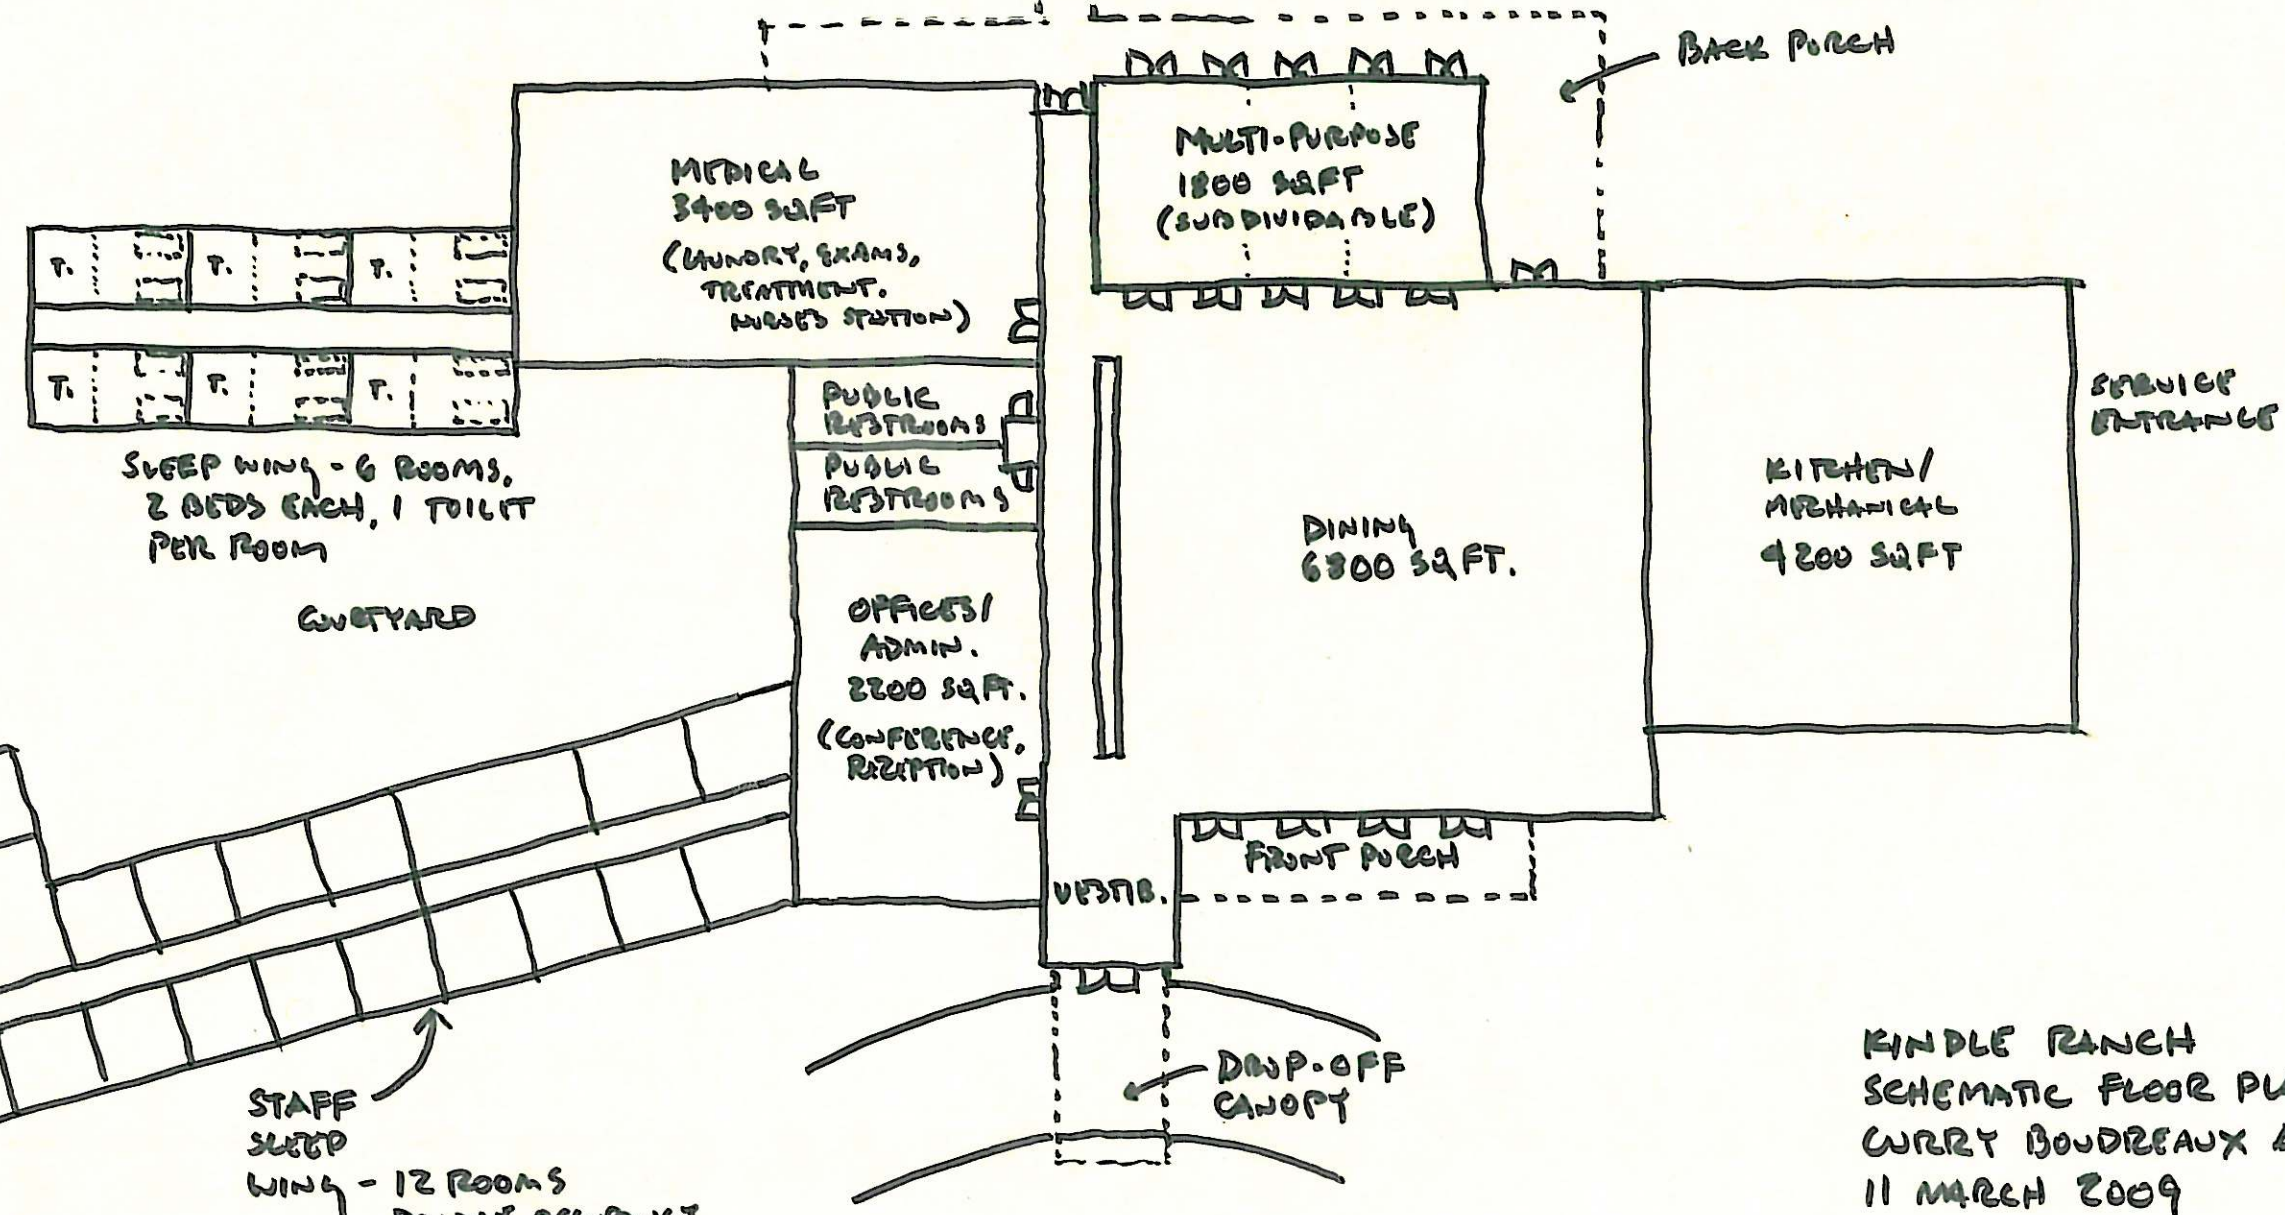 BACK PORCH
MEDICAL
3400 SQFT
(LAUNDRY, EXAMS,
TREATMENT.
NURSES STATION)
MULTI-PURPOSE
1800 SQFT
(SUBDIVIDABLE)
T.
T.
T.
T.
T.
T.
SLEEP WING - 6 ROOMS,
2 BEDS EACH, 1 TOILET
PER ROOM
COURTYARD
PUBLIC
RESTROOMS
PUBLIC
RESTROOMS
OFFICES/
ADMIN.
2200 SQ FT.
(CONFERENCE,
RECEPTION)
DINING
6800 SQ FT.
KITCHEN/
MECHANICAL
4200 SQFT
SERVICE
ENTRANCE
FRONT PORCH
VESTIB.
DROP-OFF
CANOPY
STAFF
SLEEP
WING - 12 ROOMS
KINDLE RANCH
SCHEMATIC FLOOR
CURRY BOUDREAUX
11 MARCH 2009